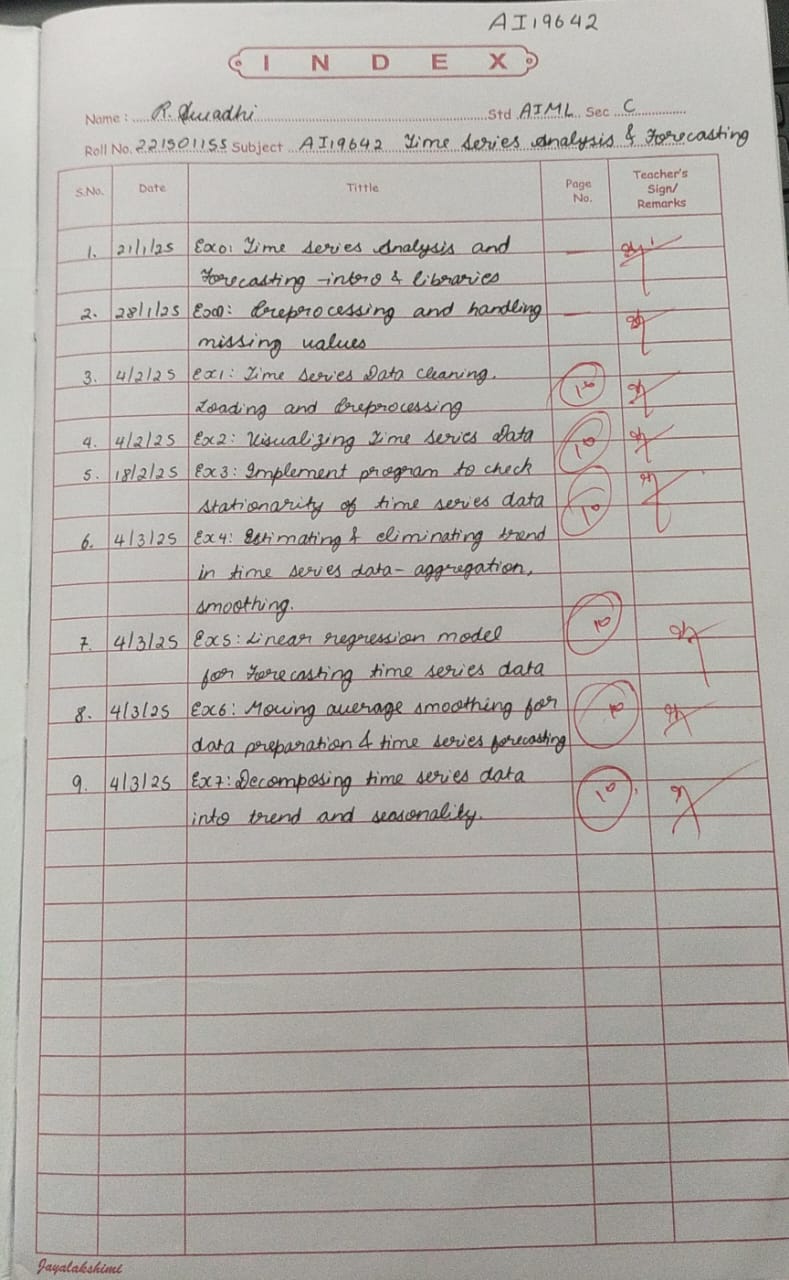 AI19642
INDEX
Name : R. Swadhi Std AIML Sec C
Roll No. 221501155 Subject AI19642 Time Series Analysis & Forecasting
S.No. Date Tittle Page No. Teacher's Sign/ Remarks
1. 21/1/25 Ex0: Time series Analysis and —
Forecasting -intro & libraries
2. 28/1/25 Ex00: Preprocessing and handling —
missing values
3. 4/2/25 Ex1: Time series Data cleaning, 10
Loading and Preprocessing
4. 4/2/25 Ex2: Visualizing Time series Data 10
5. 18/2/25 Ex3: Implement program to check
stationarity of time series data 10
6. 4/3/25 Ex4: Estimating & eliminating trend
in time series data- aggregation,
smoothing.
7. 4/3/25 Ex5: Linear regression model 10
for Forecasting time series data
8. 4/3/25 Ex6: Moving average smoothing for 10
data preparation & time series forecasting
9. 4/3/25 Ex7: Decomposing time series data 10
into trend and seasonality.
Jayalakshimi